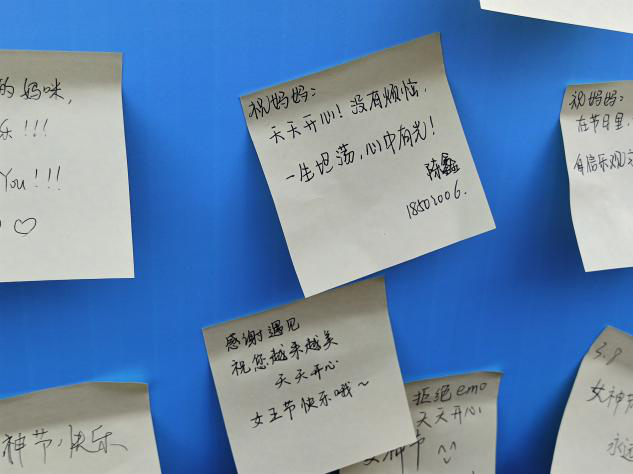 的妈咪,
乐!!!
You!!!
♡
祝妈妈:
天天开心!没有烦恼,
一生坦荡,心中有光!
陈鑫
18502006.
祝妈妈:
在节日里,
自信乐观
感谢遇见
祝您越来越美
天天开心
女王节快乐哦~
神节,快乐
拒绝emo
天天开心
女神节 ^^
3.8
女神节
永远